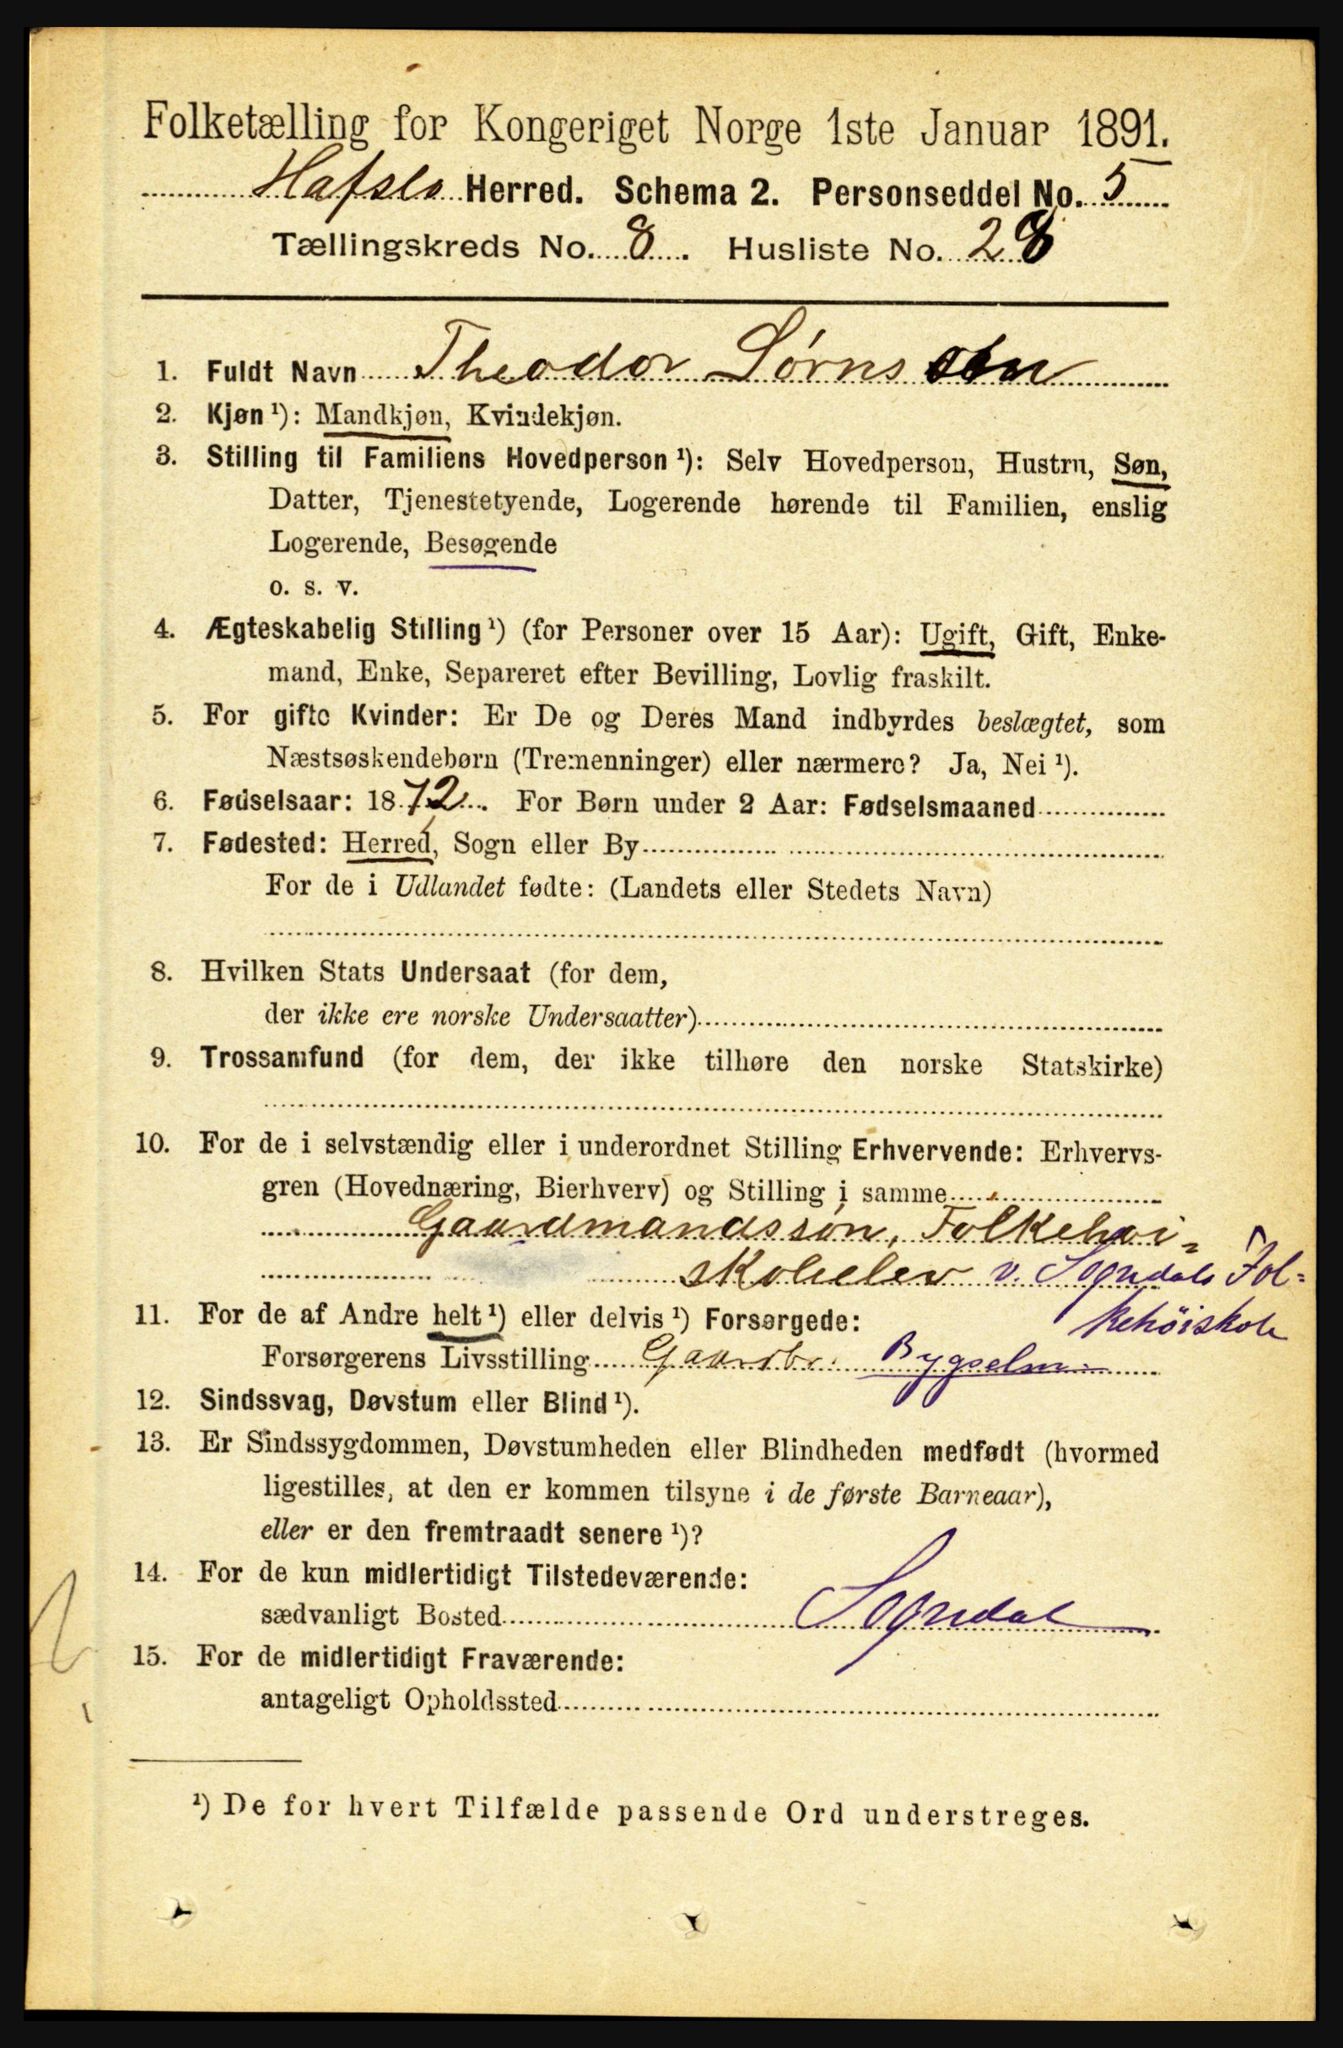 Folketælling for Kongeriget Norge 1ste Januar 1891.
Hafslo Herred. Schema 2. Personseddel No. 5
Tællingskreds No. 8. Husliste No. 28
1. Fuldt Navn Theodor Sørnssen
2. Kjøn ¹): Mandkjøn, Kvindekjøn.
3. Stilling til Familiens Hovedperson ¹): Selv Hovedperson, Hustru, Søn,
Datter, Tjenestetyende, Logerende hørende til Familien, enslig
Logerende, Besøgende
o. s. v.
4. Ægteskabelig Stilling ¹) (for Personer over 15 Aar): Ugift, Gift, Enke-
mand, Enke, Separeret efter Bevilling, Lovlig fraskilt.
5. For gifte Kvinder: Er De og Deres Mand indbyrdes beslægtet, som
Næstsøskendebørn (Tremenninger) eller nærmere? Ja, Nei ¹).
6. Fødselsaar: 1872. For Børn under 2 Aar: Fødselsmaaned
7. Fødested: Herred, Sogn eller By
For de i Udlandet fødte: (Landets eller Stedets Navn)
8. Hvilken Stats Undersaat (for dem,
der ikke ere norske Undersaatter)
9. Trossamfund (for dem, der ikke tilhøre den norske Statskirke)
10. For de i selvstændig eller i underordnet Stilling Erhvervende: Erhvervs-
gren (Hovednæring, Bierhverv) og Stilling i samme
Gaardmandssøn, Folkehøi=
skoleelev v. Sogndals Fol=
kehöiskole
11. For de af Andre helt ¹) eller delvis ¹) Forsørgede:
Forsørgerens Livsstilling Gaardbr. Bygselm=
12. Sindssvag, Døvstum eller Blind ¹).
13. Er Sindssygdommen, Døvstumheden eller Blindheden medfødt (hvormed
ligestilles, at den er kommen tilsyne i de første Barneaar),
eller er den fremtraadt senere ¹)?
14. For de kun midlertidigt Tilstedeværende:
sædvanligt Bosted Sogndal
15. For de midlertidigt Fraværende:
antageligt Opholdssted
¹) De for hvert Tilfælde passende Ord understreges.